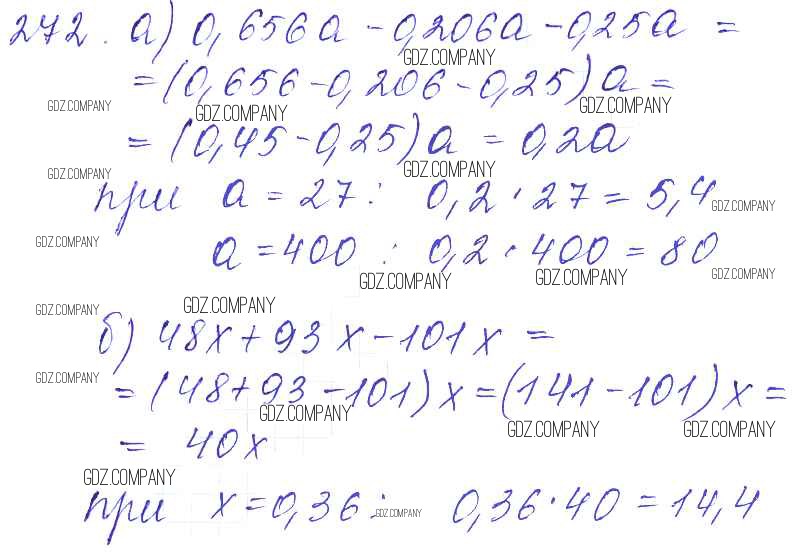 272. а) 0,656a - 0,206a - 0,25a =
GDZ.COMPANY
= (0,656 - 0,206 - 0,25)a =
GDZ.COMPANY GDZ.COMPANY GDZ.COMPANY
= (0,45 - 0,25)a = 0,2a
GDZ.COMPANY GDZ.COMPANY
при a = 27: 0,2 · 27 = 5,4
GDZ.COMPANY
GDZ.COMPANY a = 400 : 0,2 · 400 = 80
GDZ.COMPANY GDZ.COMPANY GDZ.COMPANY
GDZ.COMPANY GDZ.COMPANY
б) 48x + 93x - 101x =
GDZ.COMPANY
= (48 + 93 - 101)x = (141 - 101)x =
GDZ.COMPANY GDZ.COMPANY GDZ.COMPANY
= 40x
GDZ.COMPANY
при x = 0,36: GDZ.COMPANY 0,36 · 40 = 14,4